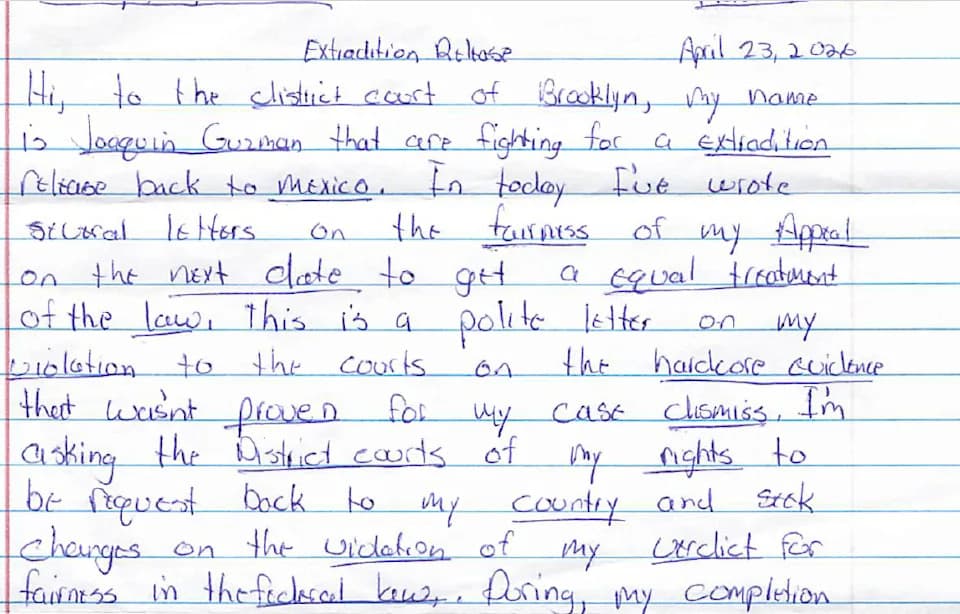 Extradition Release April 23, 2026
Hi, to the district court of Brooklyn, my name
is Joaquin Guzman that are fighting for a extradition
release back to mexico. In today I've wrote
several letters on the fairness of my Appeal
on the next date to gett a equal treatment
of the law. This is a polite letter on my
violation to the courts on the hardcore evidence
that wasn't proven for my case dismiss. I'm
asking the District courts of my rights to
be request back to my country and seek
changes on the violation of my verdict for
fairness in the federal law. During, my completion